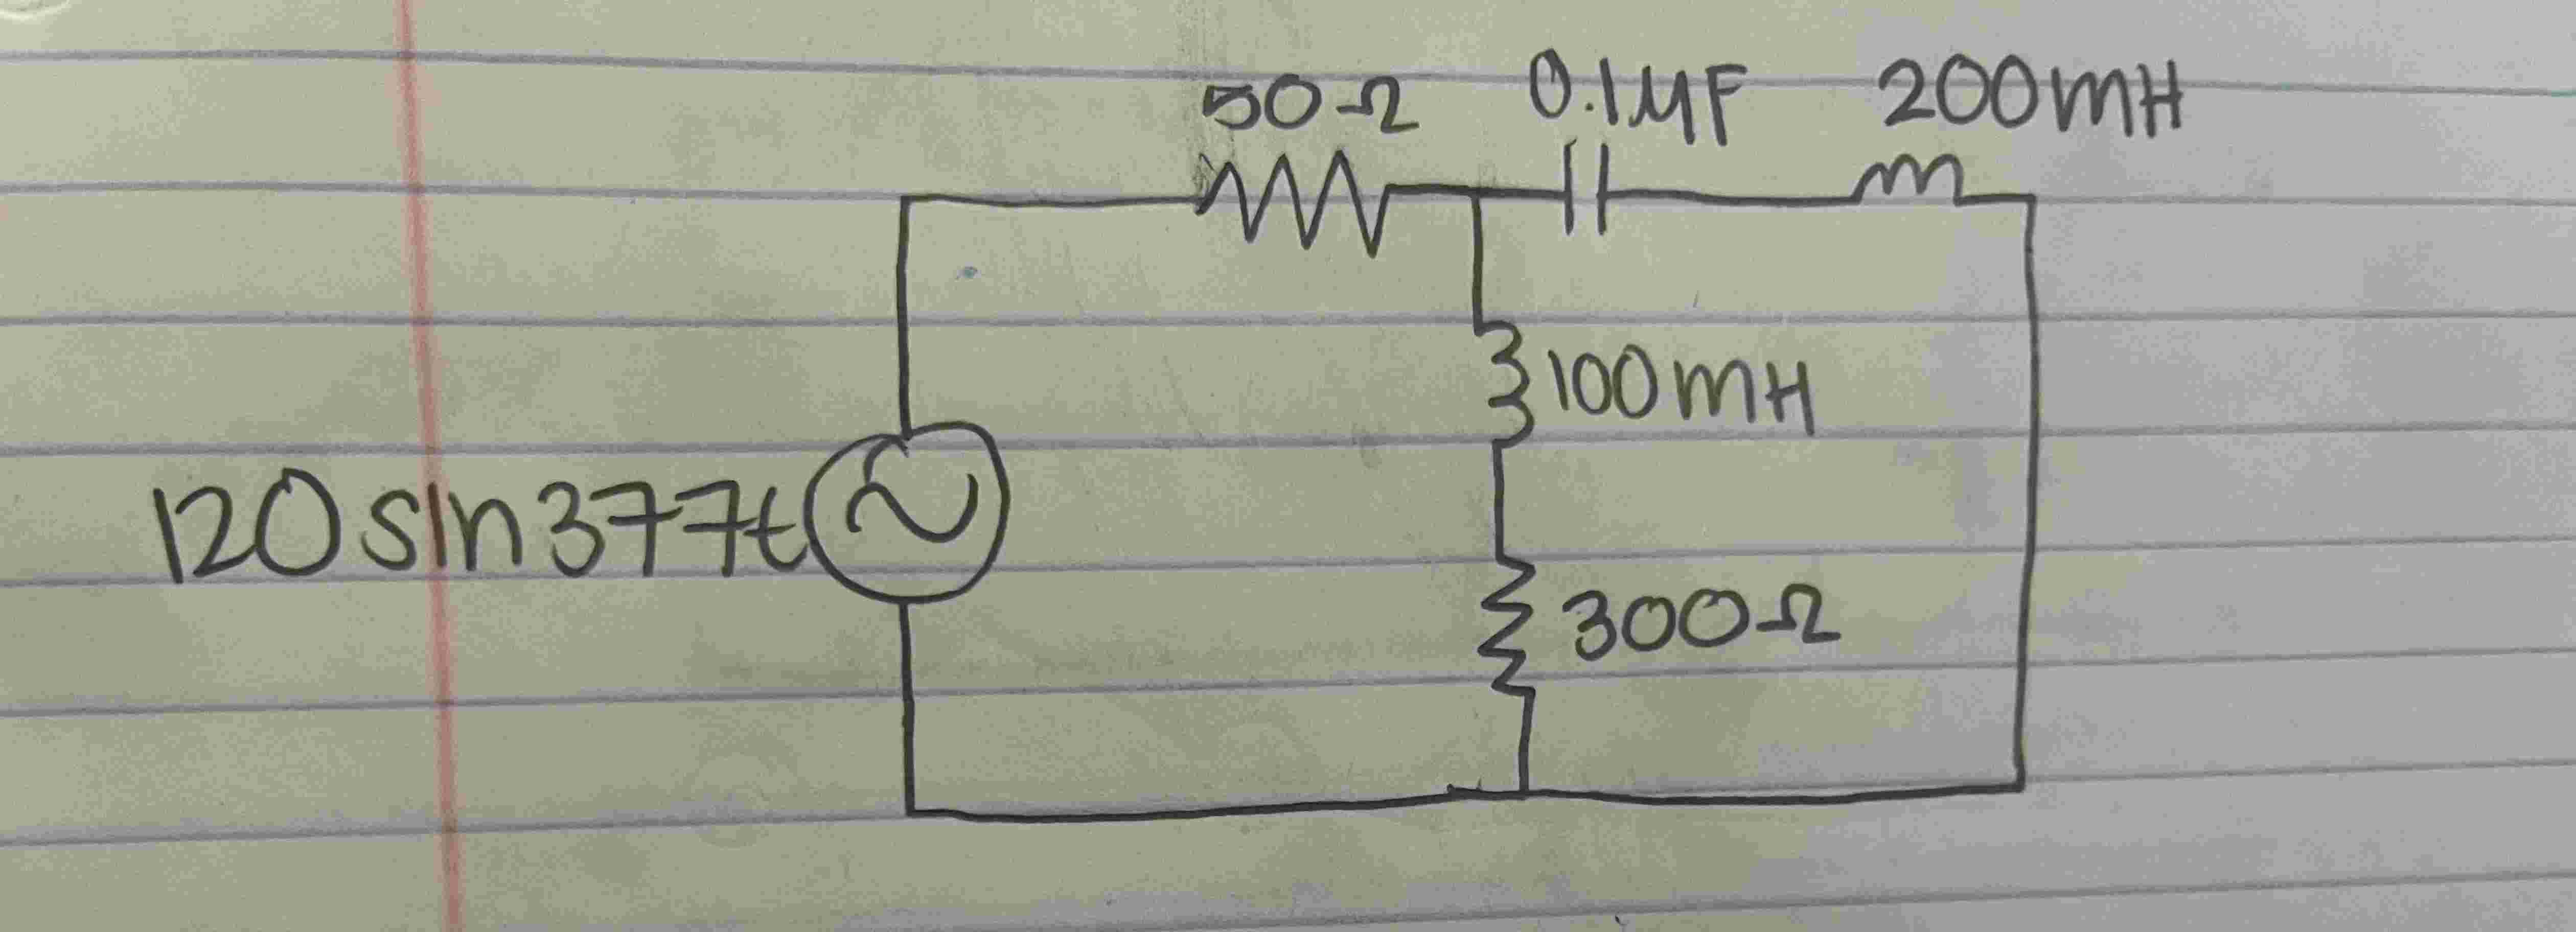 50Ω 0.1μF 200mH
100mH
120sin377t
300Ω